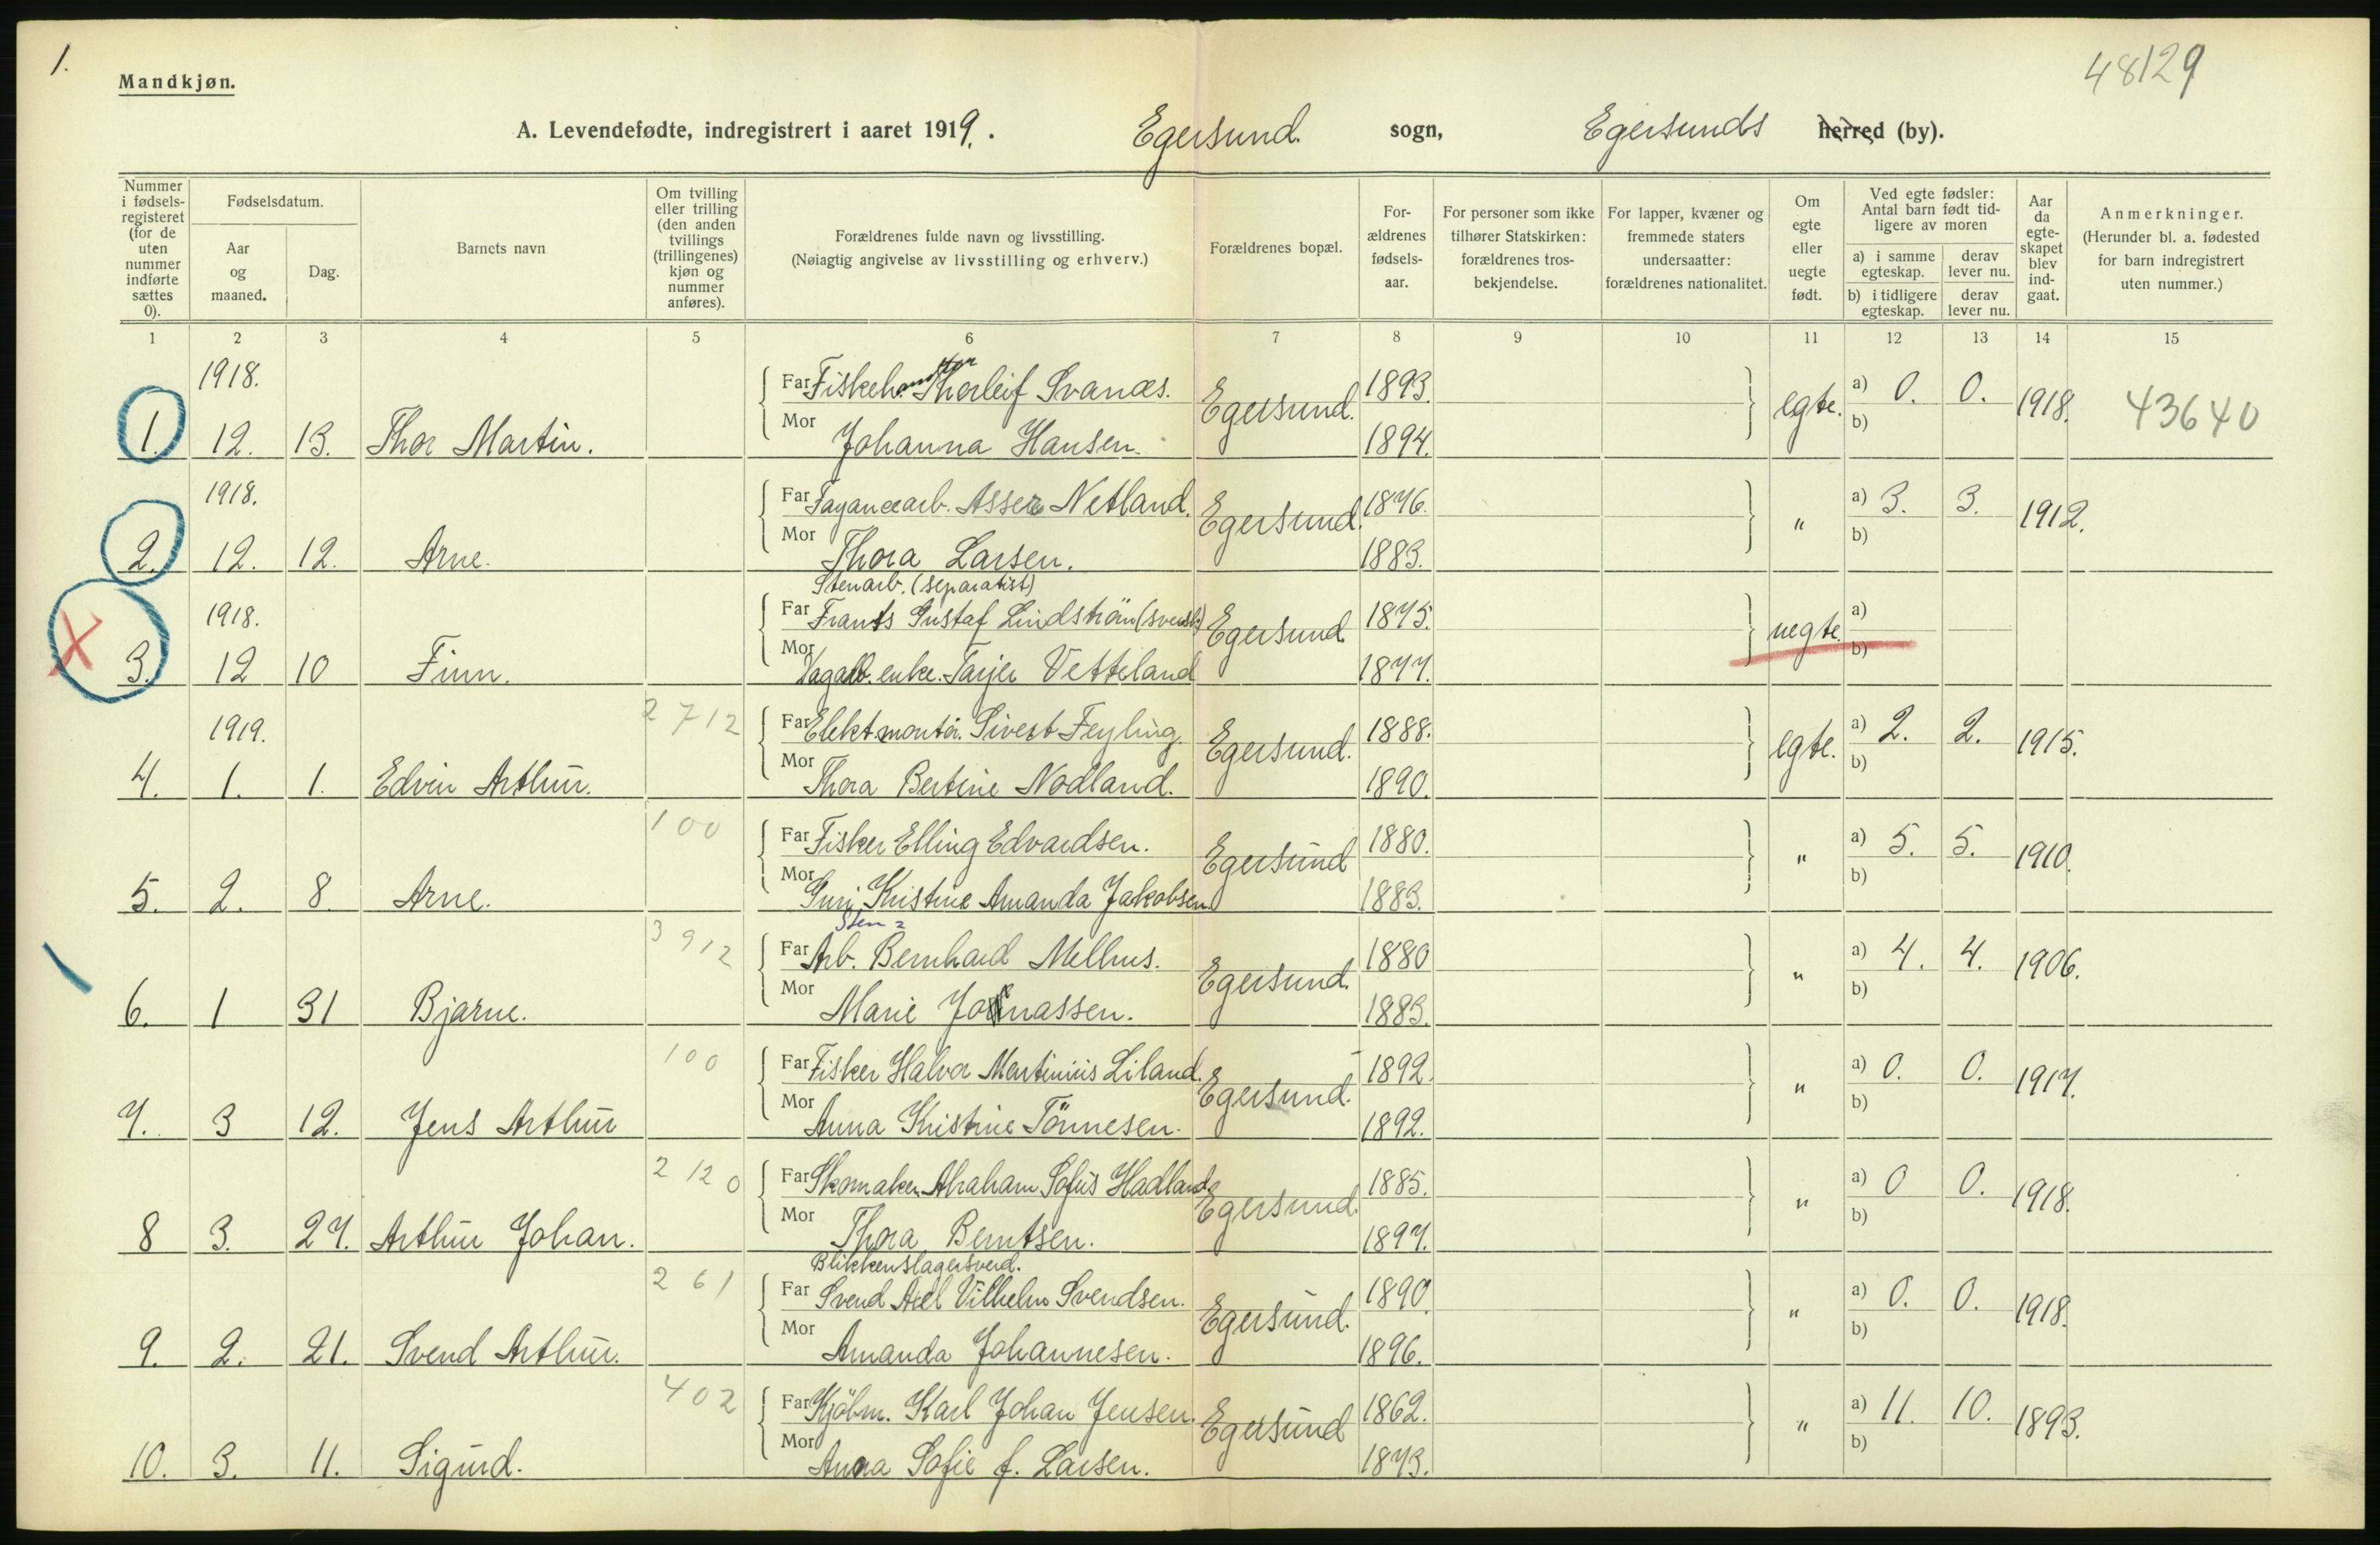 1.
48129
Mandkjøn.
A. Levendefødte, indregistrert i aaret 1919. Egersund. sogn, Egersunds herred (by).
Nummer i fødsels-registeret (for de uten nummer indførte sættes 0).
Fødselsdatum.
Aar og maaned.
Dag.
Barnets navn
Om tvilling eller trilling (den anden tvillings (trillingenes) kjøn og nummer anføres).
Forældrenes fulde navn og livsstilling.
(Nøiagtig angivelse av livsstilling og erhverv.)
Forældrenes bopæl.
For-ældrenes fødsels-aar.
For personer som ikke tilhører Statskirken: forældrenes tros-bekjendelse.
For lapper, kvæner og fremmede staters undersaatter: forældrenes nationalitet.
Om egte eller uegte født.
Ved egte fødsler: Antal barn født tid-ligere av moren
a) i samme egteskap.
derav lever nu.
b) i tidligere egteskap.
derav lever nu.
Aar da egte-skapet blev ind-gaat.
Anmerkninger.
(Herunder bl. a. fødested for barn indregistrert uten nummer.)
1 2 3 4 5 6 7 8 9 10 11 12 13 14 15
1918.
Far Fiskeh. Thorleif Svanæs. 1893. a) 0. 0.
1. 12. 13. Thor Martin. Mor Johanna Hansen. Egersund. 1894. egte. b) 1918. 43640
1918.
Far Fayancearb. Asser Netland. 1876. a) 3. 3.
2. 12. 12. Arne. Mor Thora Larsen. Egersund. 1883. " b) 1912.
Stenarb. (separatist)
1918.
Far Frants Gustaf Lindström (svensk) 1875. a)
X 3. 12 10 Finn. Mor enke. Tarjer Vetteland Egersund 1877. uegte. b)
2 712
1919.
Far Elektmontör. Sivert Feyling. 1888. a) 2. 2.
4. 1. 1. Edvin Arthur. Mor Thora Bertine Nodland. Egersund. 1890. egte. b) 1915.
100
Far Fisker Elling Edvardsen. 1880. a) 5. 5.
5. 2. 8. Arne. Mor Guri Kristine Amanda Jakobsen Egersund 1883. " b) 1910.
Sten=
3 912
Far Arb. Bernhard Melhus. 1880 a) 4. 4.
6. 1 31 Bjarne. Mor Marie Jonassen. Egersund. 1883. " b) 1906.
100
Far Fisker Halvor Martinius Liland. 1892. a) 0. 0.
7. 3 12. Jens Arthur Mor Anna Kristine Tönnesen. Egersund. 1892. " b) 1917.
2 120
Far Skomaker Abraham Sofus Hadland 1885. a) 0 0.
8 3. 27. Arthur Johan. Mor Thora Berntsen. Egersund. 1897. " b) 1918.
Blikkenslagersvend.
2 61
Far Svend Axel Vilhelm Svendsen. 1890. a) 0. 0.
9. 2. 21. Svend Arthur. Mor Amanda Johannesen. Egersund. 1896. " b) 1918.
402
Far Kjöbm. Karl Johan Jensen. 1862. a) 11. 10.
10. 3. 11. Sigurd. Mor Anna Sofie f. Larsen. Egersund 1873. " b) 1893.